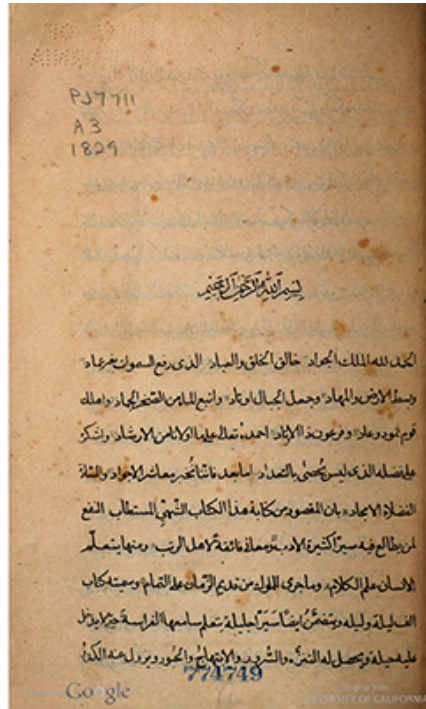 PJ7711
A3
1829
بسم الله الرحمن الرحيم
الحمد لله الملك الجواد خالق الخلق والعباد الذى رفع السموات بغير عماد
وبسط الارض والمهاد وجعل الجبال اوتاد وانبع الما من الصخر الجماد واهلك
قوم ثمود وعاد وفرعون ذا الاوتاد احمده تعالى على ما اولانا من الارشاد واشكره
على فضله الذى ليس يحصى بالتعداد اما بعد فاننا نخبر معاشر الاجواد والسادة
الفضلاة الامجاد بان المقصود من كتابة هذا الكتاب الشهى المستطاب النفع
لمن يطالع فيه سيرا كثيرة الادب ومعانى فائقة لاهل الرتب ومنها يتعلم
الانسان علم الكلام وما جرى للملوك من قديم الزمان على التمام وسميته كتاب
الف ليلة وليلة ويتضمن ايضا سيرا جليلة يتعلم سامعها الفراسة حتى لا يدخل
عليه حيلة ويحصل له التنزه والسرور والابتهاج والحبور ويزول عنه الكدر
774749
Google
Original from
UNIVERSITY OF CALIFORNIA